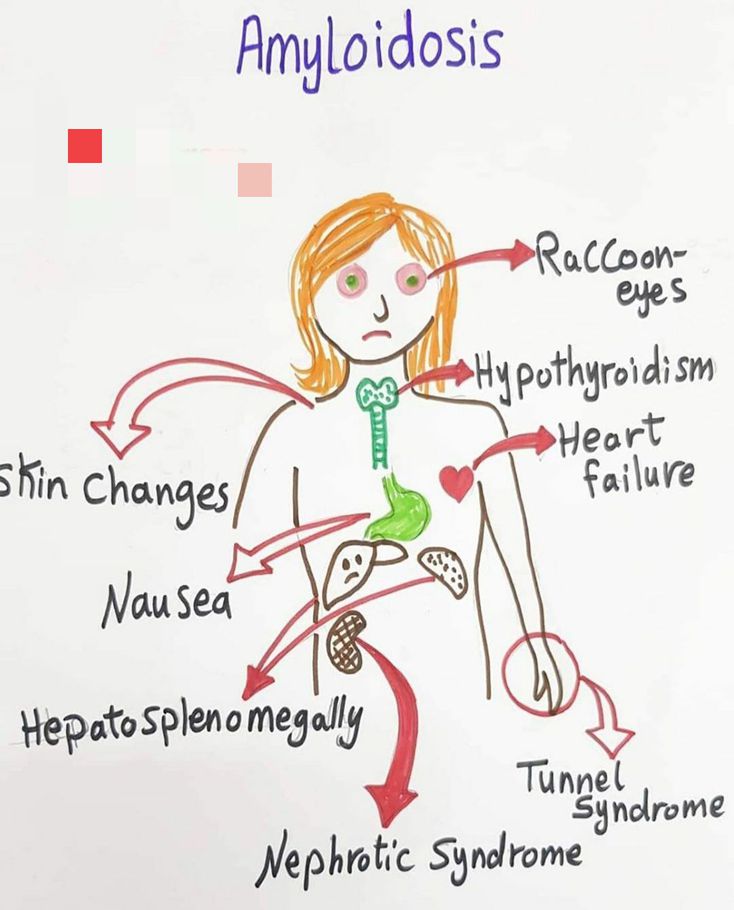 Amyloidosis
Raccoon-
eyes
Hypothyroidism
Heart
failure
Skin Changes
Nausea
Hepatosplenomegally
Tunnel
Syndrome
Nephrotic Syndrome